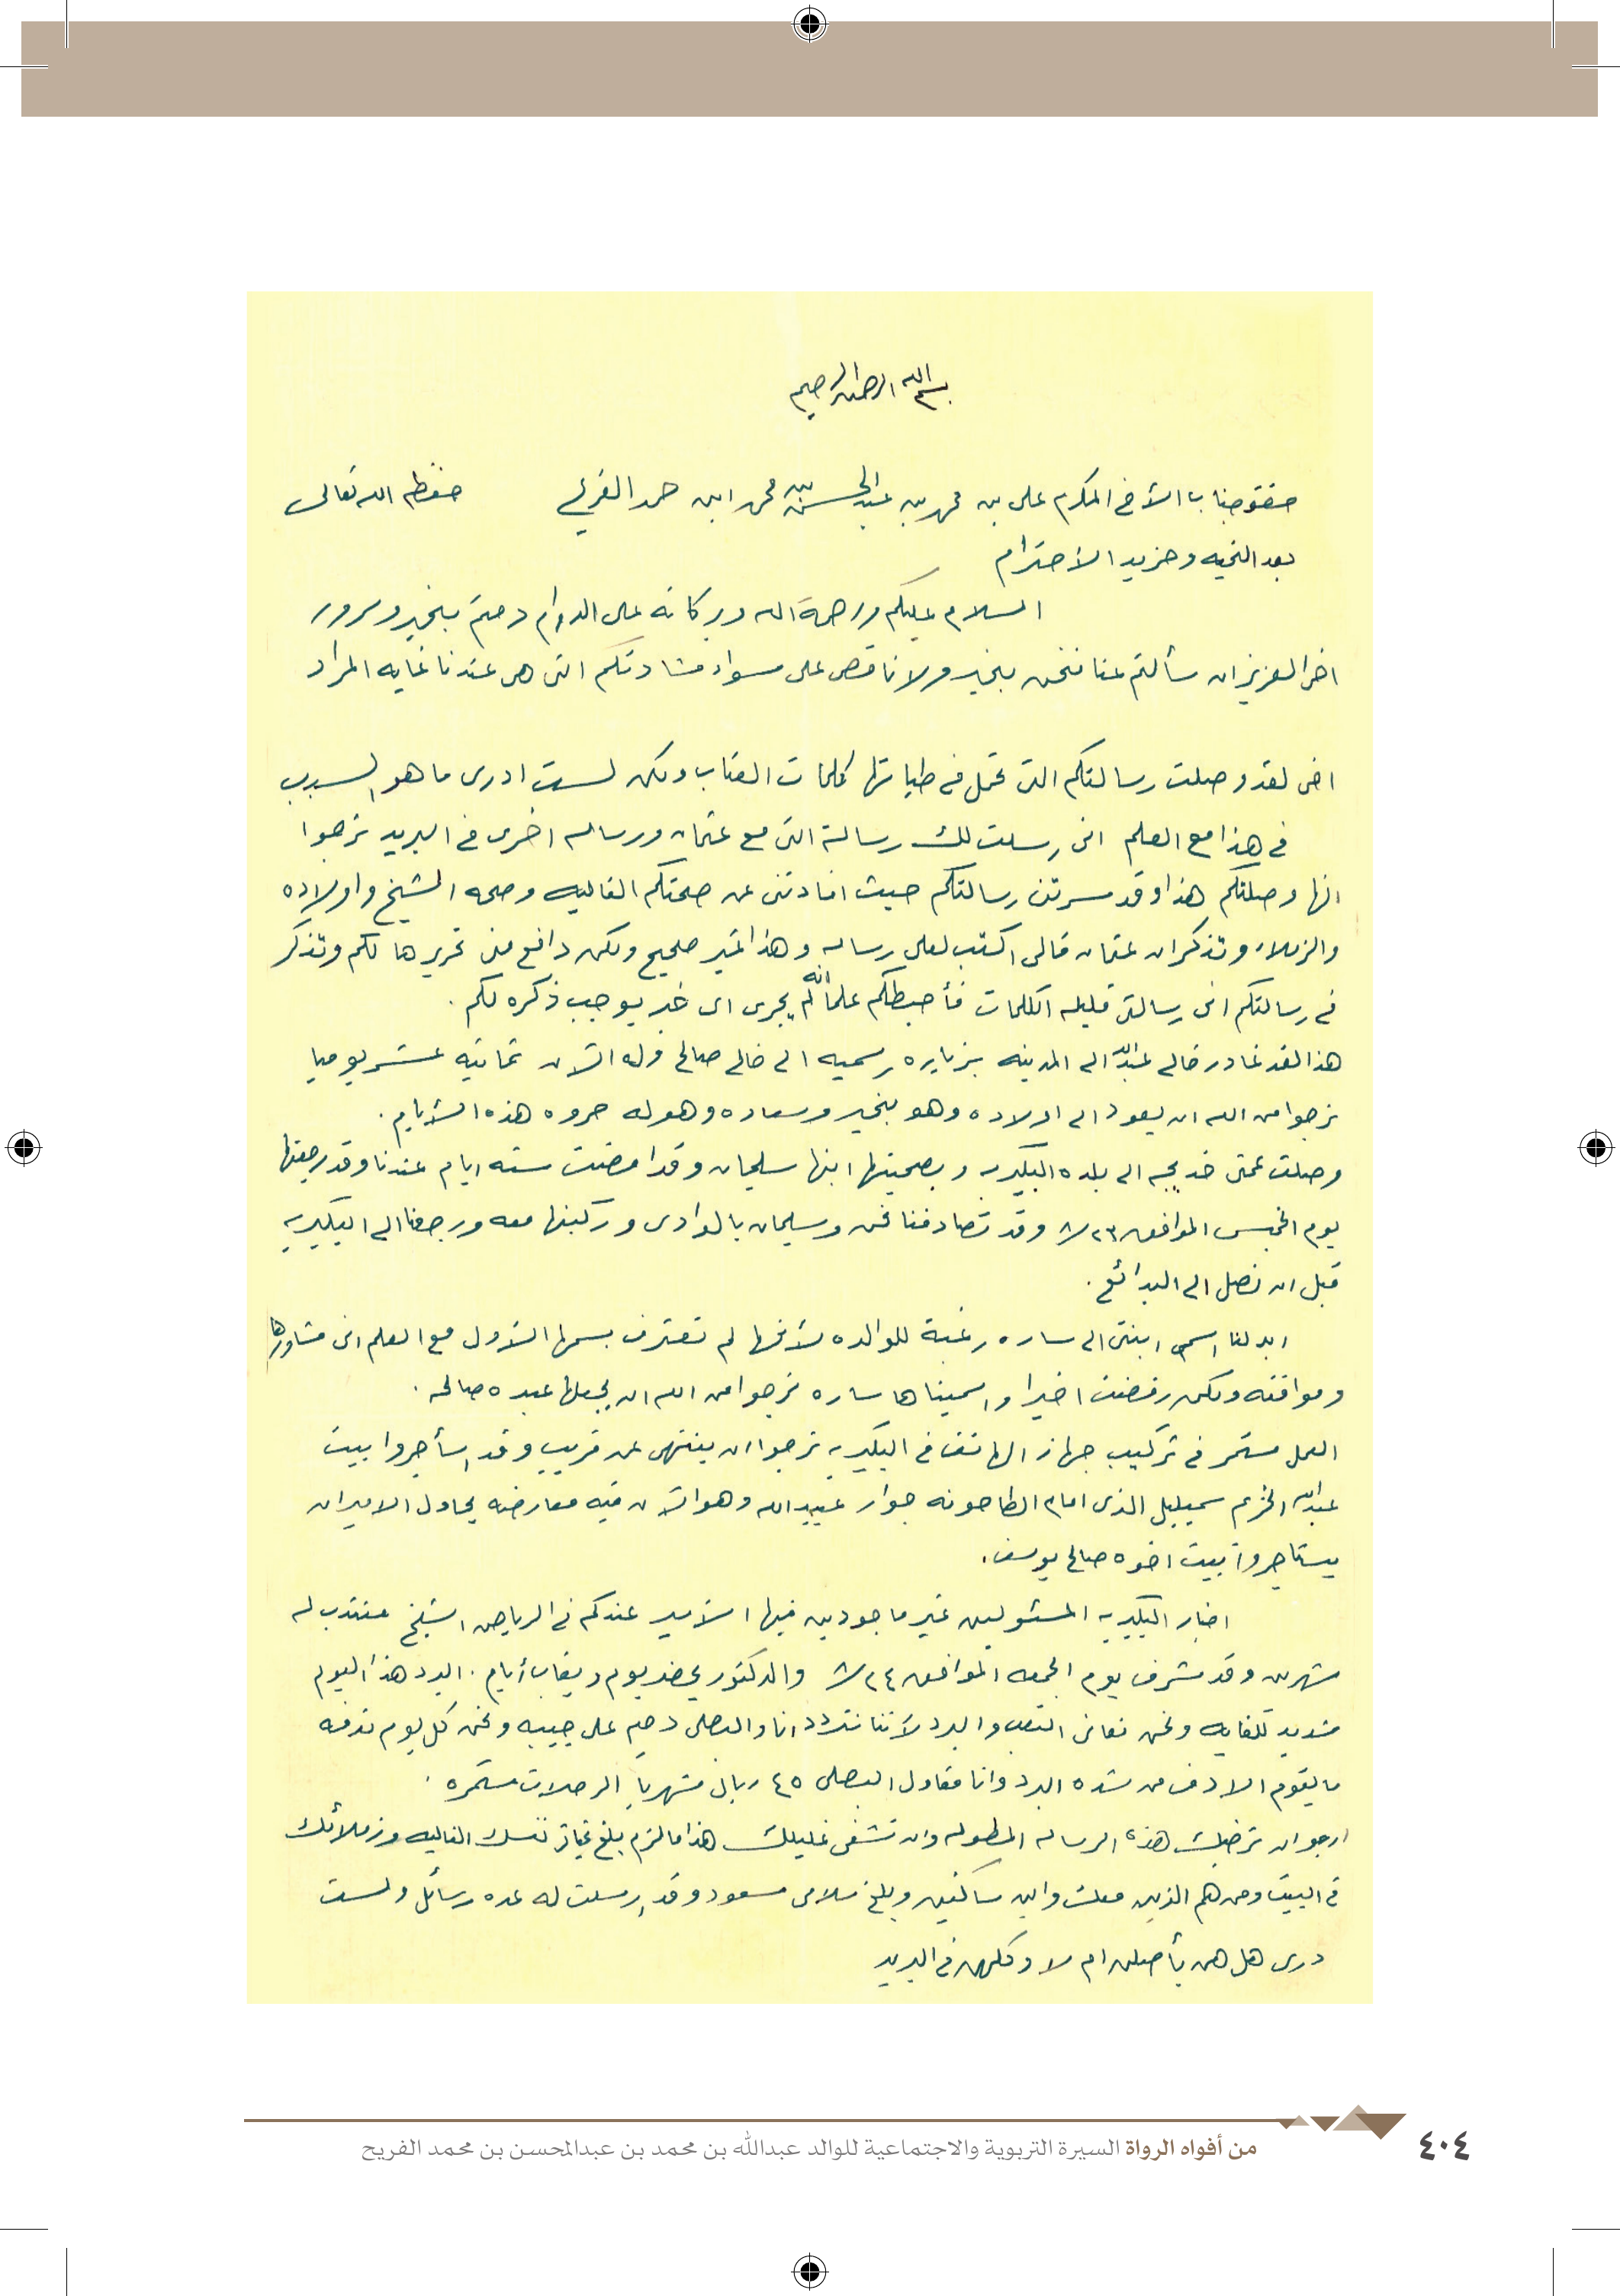 بسم الله الرحمن الرحيم
جناب الأخ المكرم على بن محمد بن عبدالمحسن بن محمد ابن حمد الفريح حفظه الله تعالى
بعد التحيه ومزيد الأحترام
السلام عليكم ورحمة الله وبركاته على الدوام دمتم بخير وسرور
اخى العزيز ان سألتم عنا فنحن بخير ولا ناقص على سواء مشادتكم التى هى عندنا غايه المراد
اخى لقد وصلت رسالتكم التى تحمل فى طياتها كلمات العتاب ولكن لست ادرى ما هو السبب
فى هذا مع العلم انى رسلت لك رسالة التى مع عثمان ورساله اخرى فى البريد نرجوا
انها وصلتكم هذا وقد سرتنى رسالتكم حيث افادتنى عن صحتكم الغاليه وصحه الشيخ واولاده
والزملاء وتذكر ان عثمان قالى اكتب لعلى رساله وهذا غير صحيح ولكن دافع منى تحريرها لكم وتذكر
فى رسالتكم انى رسالتى قليله الكلمات فأحيطكم علما انه لم يجرى اى خبر يوجب ذكره لكم .
هذا لقد غادر خالى عبدالله الى المدينه بزياره رسميه الى خالى صالح وله الآن ثمانيه عشر يوميا
نرجوا من الله ان يعود الى اولاده وهو بخير وسعاده وهوله حروه هذه الأيام .
وصلت عمتى خديجه الى بلده البكيريه وبصحبتها ابنها سليمان وقد امضت سته ايام عندنا وقد رجعتها
يوم الخميس الموافق ٨/٢٣ وقد تصادفنا نحن وسليمان بالوادى وركبنها معه ورجعنا الى البكيريه
قبل ان نصل الى البدائع .
ابدلنا اسمى ابنتى الى ساره رغبة للوالده لأنها لم تعترف بسمها الأول مع العلم انى مشاورها
وموافقه ولكن رفضت اخيرا واسميناها ساره نرجوا من الله ان يجعلها عبده صالحه .
العمل مستمر فى تركيب جهاز الهاتف فى البكيريه نرجوا ان ينتهى عن قريب وقد إستأجروا بيت
عبدالله الخزيم سميليل الذى امام الطاحونه جوار عبيدالله وهو الآن فيه معارضه يحاول الامير ان
يستاجروا بيت اخوه صالح يوسف .
اخبار البكيريه المسئولين غير ماجودين فيها الأمير عندكم فى الرياض الشيخ منتدب له
شهرين وقد مشرف يوم الجمعه الموافق ٨/٢٤ والدكتور يحضر يوم ويغاب أيام . البرد هذا اليوم
شديد للغايه ونحن نعانى التعب والبرد لأننا نتردد انا والبصلى دحيم على جيبه ونحن كل يوم ندفه
ما يقوم الا دف من شده البرد وانا مقاول البصلى ٤٥ ريال شهريا الرحلات مستمره .
ارجو ان ترضيك هذه الرساله المطوله وان تشفى غليلك هذا ما لزم بلغ نفسك الغاليه وزملائك
فى البيت ومن هم الذين معك واين ساكنين وبلغ سلامى مسعود وقد إرسلت له عده رسائل ولست
درى هل هى يأصلن ام لا وكلهن فى البريد
من أفواه الرواة السيرة التربوية والاجتماعية للوالد عبدالله بن محمد بن عبدالمحسن بن محمد الفريح
٤٠٤